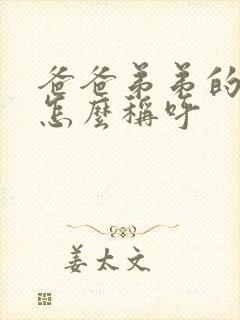 爸爸弟弟的
怎麼稱呼
姜太文